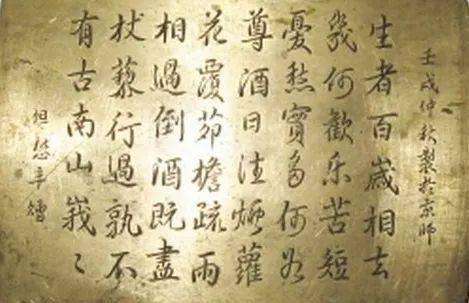 壬戌仲秋製於京師
生者百歲相去
幾何歡乐苦短
憂愁實多何如
尊酒日往煙蘿
花覆茆檐疏雨
相過倒酒既盡
杖藜行過孰不
有古南山峩〻
但懋辛贈